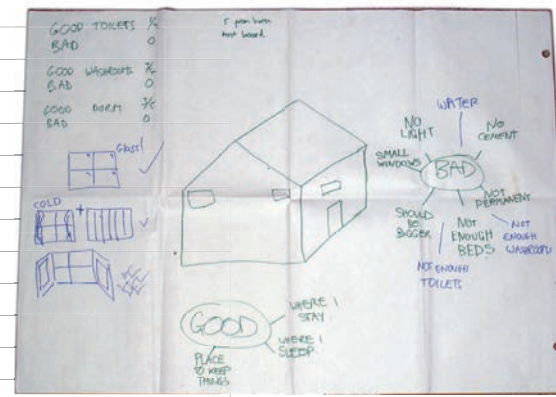 GOOD TOILETS
BAD 0
GOOD WASHROOMS
BAD 0
GOOD DORM
BAD 0
Glass!
COLD
+
WATER
NO LIGHT
NO CEMENT
SMALL WINDOWS
BAD
NOT PERMANENT
SHOULD BE BIGGER
NOT ENOUGH BEDS
NOT ENOUGH WASHROOMS
NOT ENOUGH TOILETS
GOOD
WHERE I STAY
WHERE I SLEEP
PLACE TO KEEP THINGS